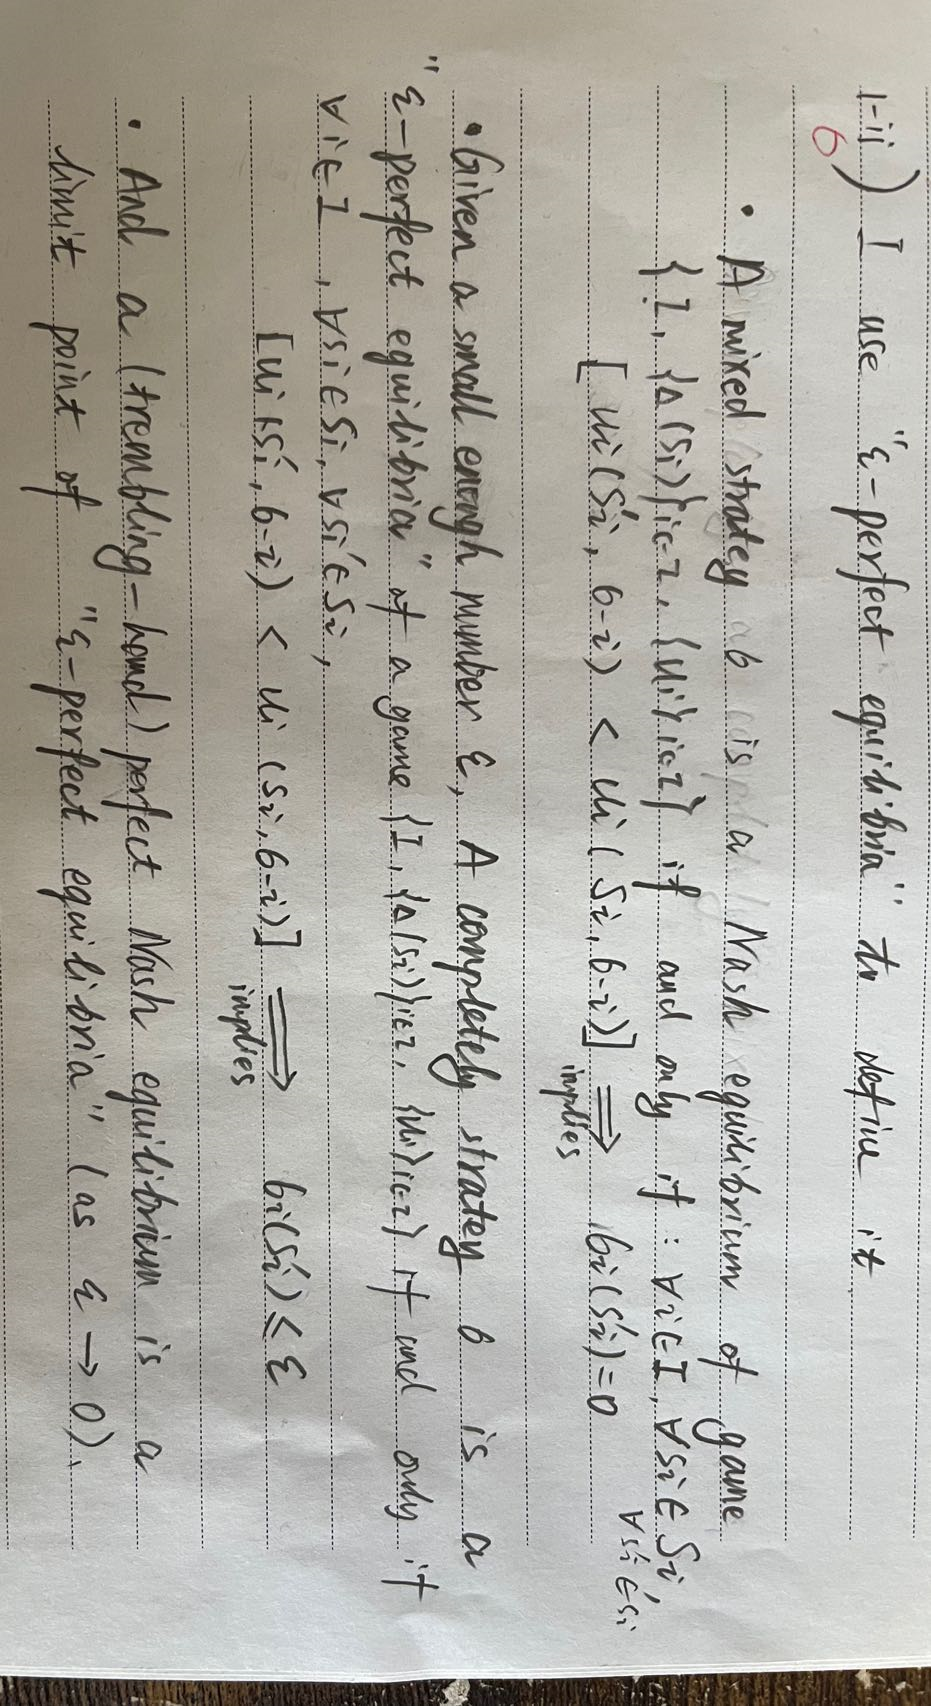 1-ii) I use "ε-perfect equilibria" to define it
6
• A mixed stratey б is a Nash equilibrium of game
{I, {Δ(Si)}i∈I, {ui}i∈I} if and only if : ∀i∈I, ∀si∈Si
∀si'∈Si
[ui(si', б-i) < ui(si, б-i)] ⟹ бi(si')=0
implies
• Given a small enough number ε, A completely stratey б is a
"ε-perfect equilibria" of a game {I, {Δ(Si)}i∈I, {ui}i∈I} if and only if
∀i∈I, ∀si∈Si, ∀si'∈Si,
[ui(si', б-i) < ui(si, б-i)] ⟹ бi(si') ≤ ε
implies
• And a (trembling-hand) perfect Nash equilibrium is a
limit point of "ε-perfect equilibria" (as ε → 0).